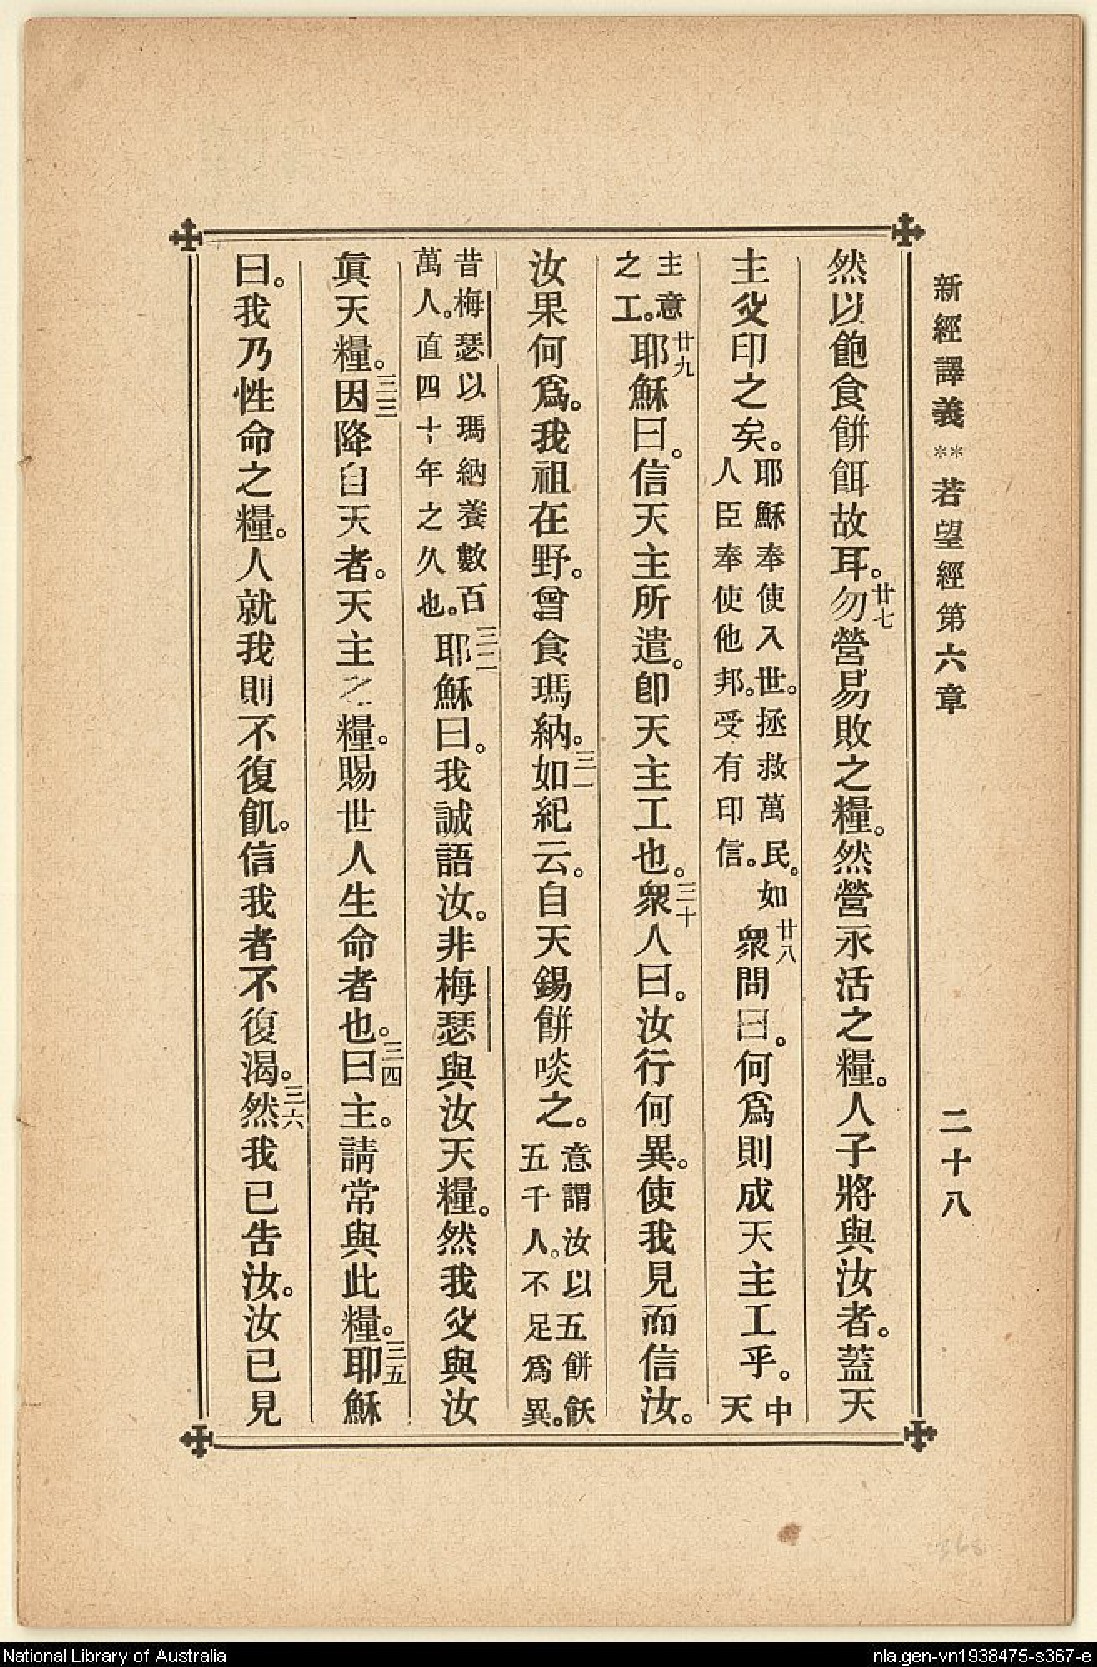 新經譯義 ** 若望經第六章 二十八
然以飽食餅餌故耳。廿七勿營易敗之糧。然營永活之糧。人子將與汝者。蓋天
主父印之矣。耶穌奉使入世。拯救萬民。如人臣奉使他邦。受有印信。廿八衆問曰。何爲則成天主工乎。中天
主意之工。廿九耶穌曰。信天主所遣。卽天主工也。三十衆人曰。汝行何異。使我見而信汝。
汝果何爲。我祖在野。曾食瑪納。三一如紀云。自天錫餅啖之。意謂汝以五餅飫五千人。不足爲異。
昔梅瑟以瑪納養數百萬人。直四十年之久也。三二耶穌曰。我誠語汝。非梅瑟與汝天糧。然我父與汝
眞天糧。三三因降自天者。天主之糧。賜世人生命者也。三四曰主。請常與此糧。三五耶穌
曰。我乃性命之糧。人就我則不復飢。信我者不復渴。三六然我已告汝。汝已見
National Library of Australia
nla.gen-vn1938475-s367-e